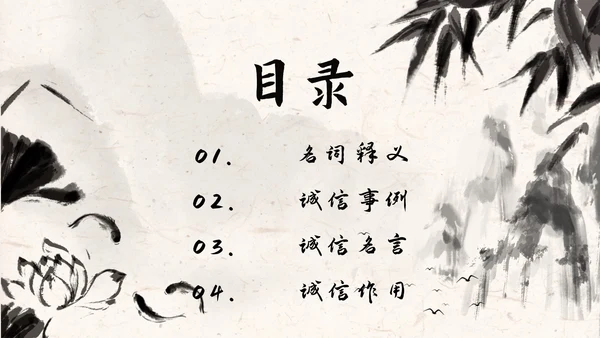 目录
01. 名词释义
02. 诚信事例
03. 诚信名言
04. 诚信作用